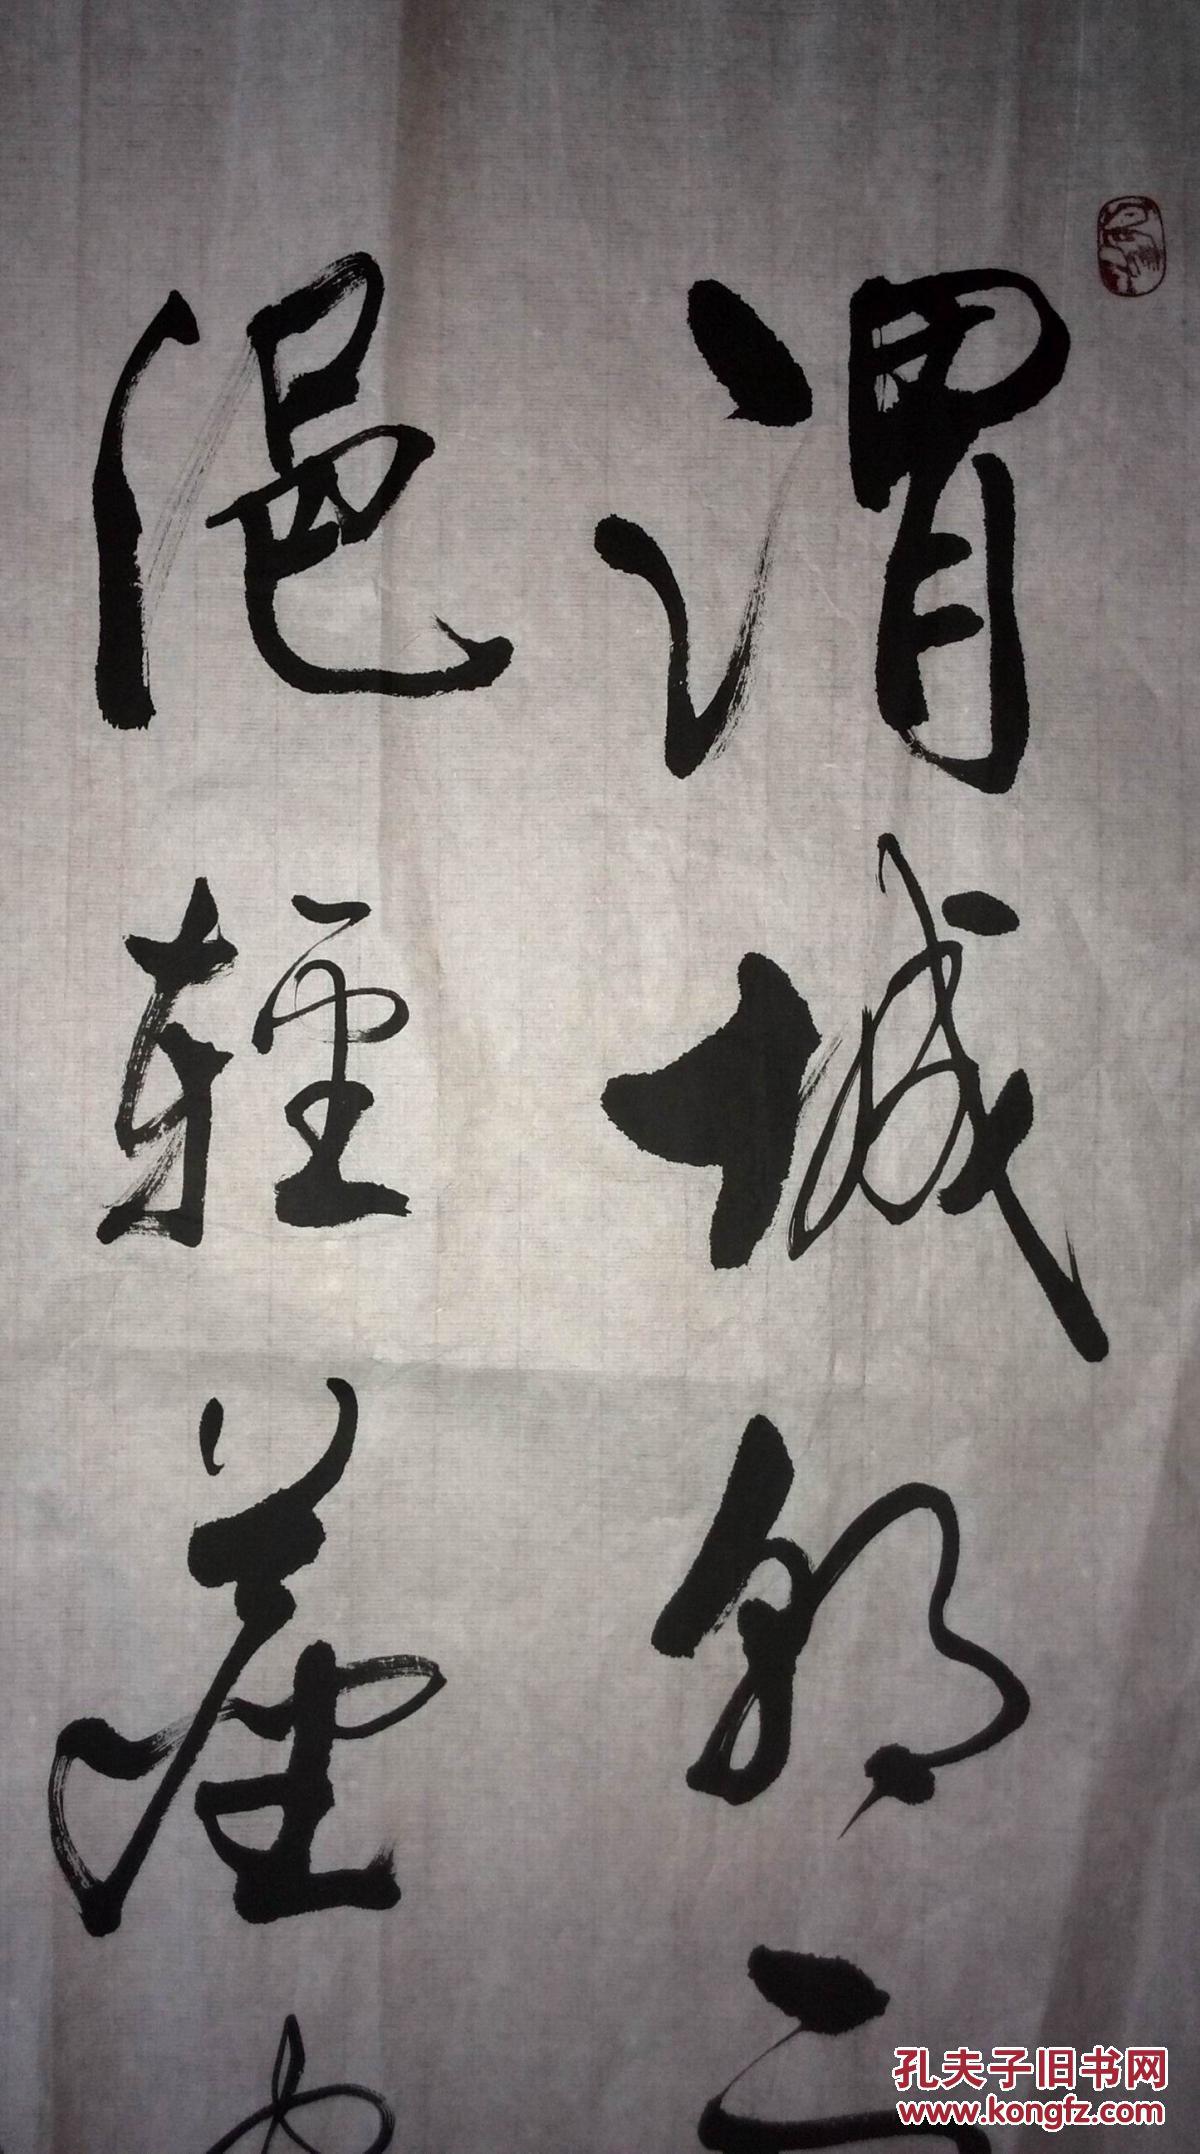 渭城朝
浥輕塵
孔夫子旧书网
www.kongfz.com